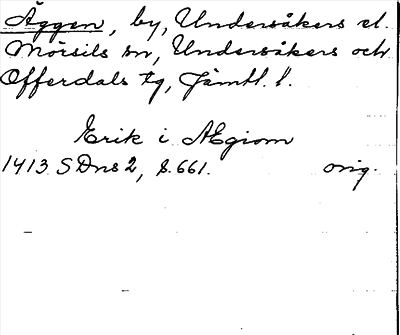 Äggen, by, Undersåkers el.
Mörsils sn, Undersåkers och
Offerdals tg, Jämtl. l.
Erik i Ægiom
1413 SDns 2, s. 661. orig.